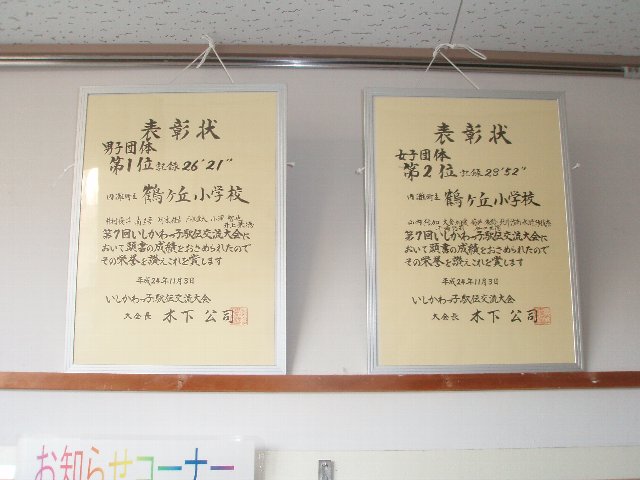 表彰状
男子団体
第1位 記録26'21"
内灘町立 鶴ヶ丘小学校
第7回いしかわっ子駅伝交流大会に
おいて頭書の成績をおさめられたので
その栄誉を讃えこれを賞します
平成24年11月3日
いしかわっ子駅伝交流大会
大会長 木下公司
表彰状
女子団体
第2位 記録28'52"
内灘町立 鶴ヶ丘小学校
第7回いしかわっ子駅伝交流大会に
おいて頭書の成績をおさめられたので
その栄誉を讃えこれを賞します
平成24年11月3日
いしかわっ子駅伝交流大会
大会長 木下公司
お知らせコーナー